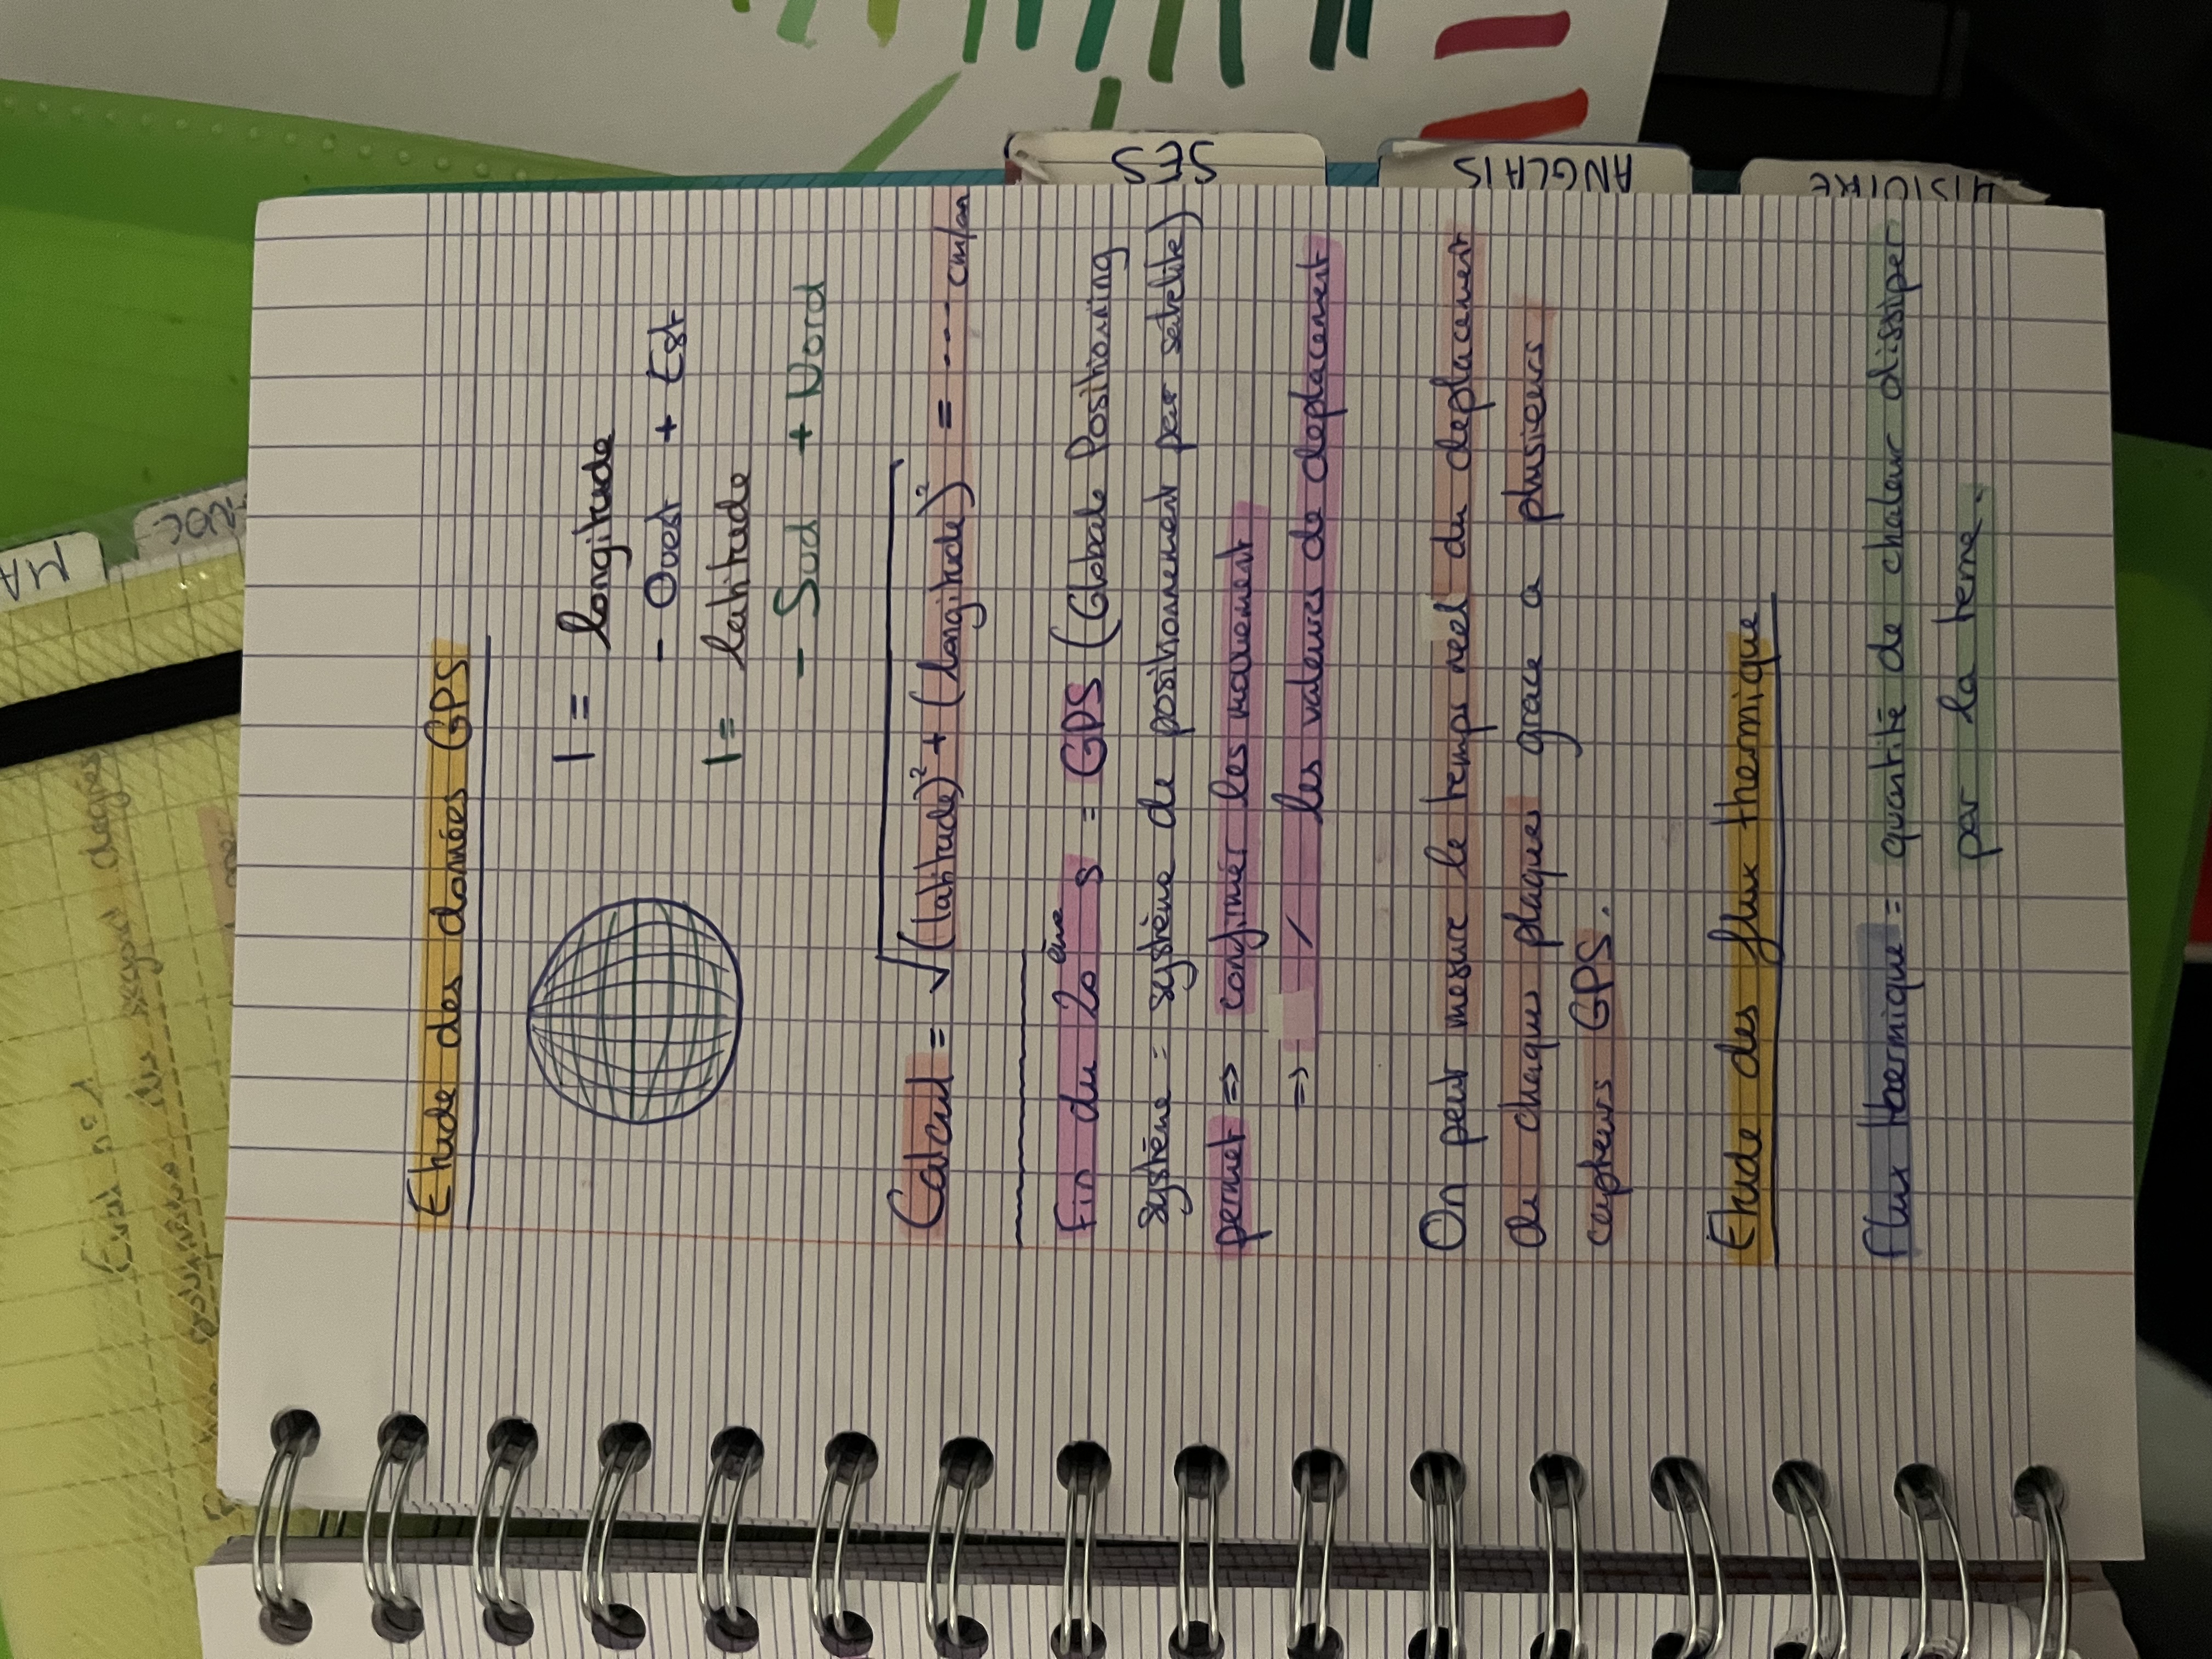 Etude des données GPS
| = longitude
- Ouest + Est
| = latitude
- Sud + Nord
Calcul = √(latitude)² + (longitude)² = .... cm/an
Fin du 20ème s = GPS (Globale Positioning
système = système de positionnement par satelite)
permet => confirmer les mouvement
=> / les valeurs de deplacement
On peut mesure le temps réel du deplacement
de chaques plaques grace a plusieurs
capteurs GPS.
Etude des flux thermique
flux thermique = quantité de chaleur dissiper
par la terre.
SES
ANGLAIS
HISTOIRE
MA
Eval n°1
du segond degrés